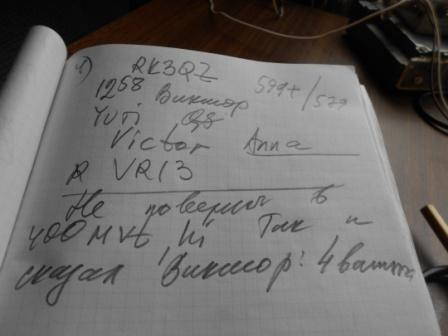 1) RK3QZ
1258 Виктор 599+/579
Yuri
Victor Anna
R VR13
Не поверил в
400 мVt hi Так и
сказал Виктор: 4 ватта